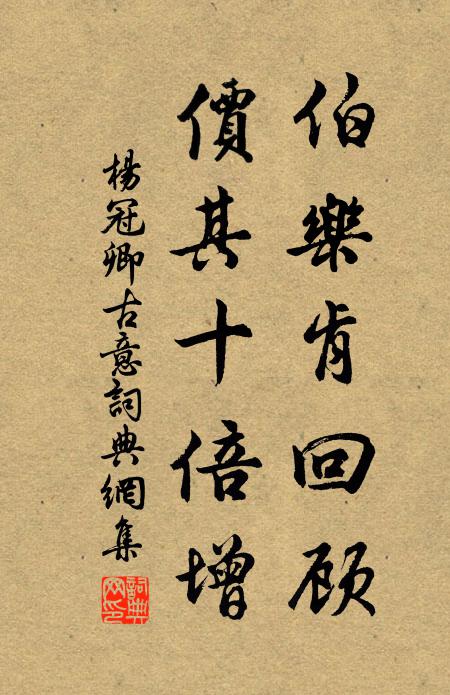 伯樂肯回顾
價其十倍增
楊冠卿古意詞典網集
詞典网印